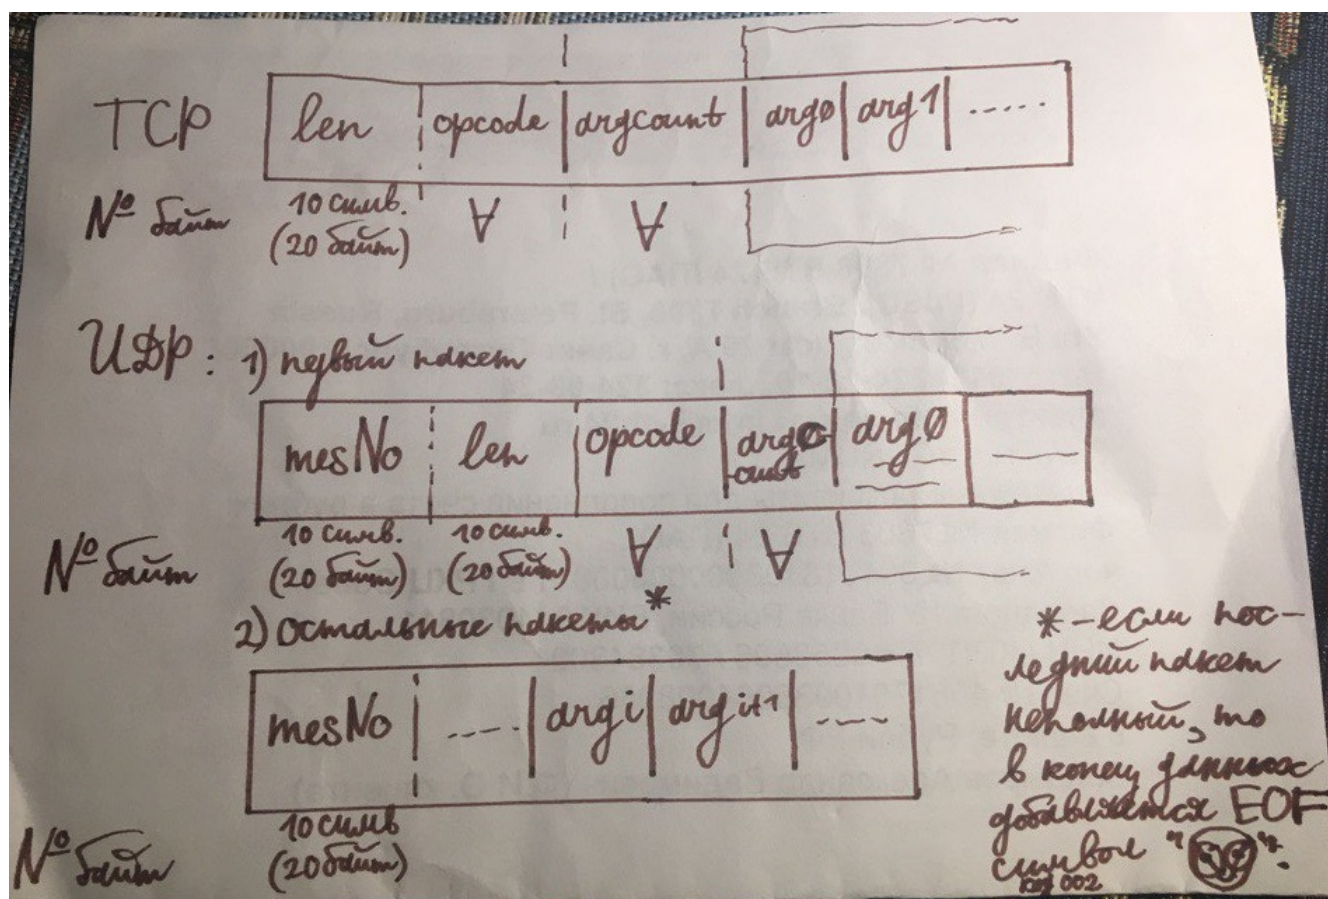 TCP len opcode argcount arg0 arg1 .....
№ байт 10 симв. ∀ ∀
(20 байт)
UDP: 1) первый пакет
mesNo len opcode argc arg0
ount
№ байт 10 симв. 10 симв. ∀ ∀
(20 байт) (20 байт)
2) остальные пакеты*
mesNo .... argi argi+1 ....
№ байт 10 симв
(20 байт)
*-если пос-
ледний пакет
неполный, то
в конец данных
добавляется EOF
символ " ".
002